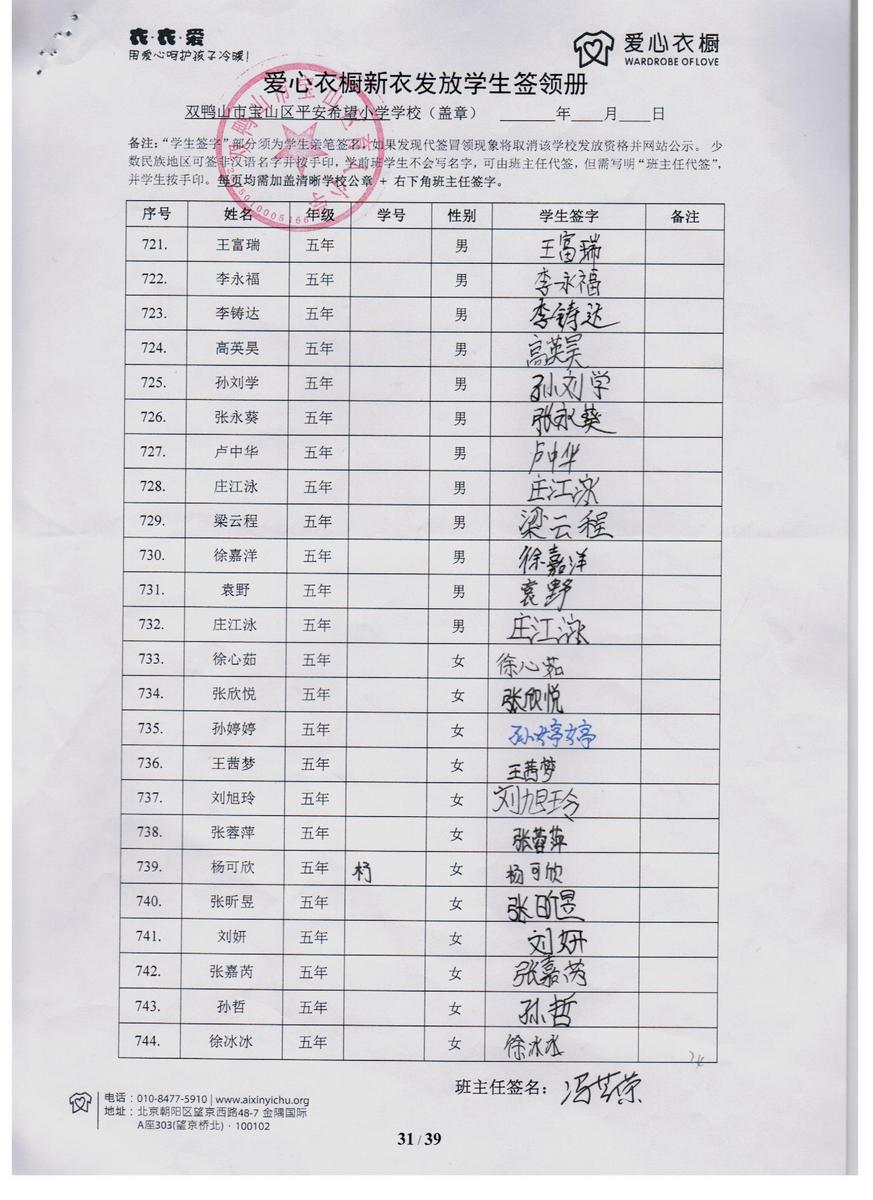 衣·衣·爱
用爱心呵护孩子冷暖!
爱心衣橱
WARDROBE OF LOVE
爱心衣橱新衣发放学生签领册
双鸭山市宝山区平安希望小学学校（盖章） ______年____月___日
备注：“学生签字”部分须为学生亲笔签名，如果发现代签冒领现象将取消该学校发放资格并网站公示。 少
数民族地区可签非汉语名字并按手印，学前班学生不会写名字，可由班主任代签，但需写明“班主任代签”，
并学生按手印。每页均需加盖清晰学校公章 + 右下角班主任签字。
序号 姓名 年级 学号 性别 学生签字 备注
721. 王富瑞 五年 男 王富瑞
722. 李永福 五年 男 李永福
723. 李铸达 五年 男 李铸达
724. 高英昊 五年 男 高英昊
725. 孙刘学 五年 男 孙刘学
726. 张永葵 五年 男 张永葵
727. 卢中华 五年 男 卢中华
728. 庄江泳 五年 男 庄江泳
729. 梁云程 五年 男 梁云程
730. 徐嘉洋 五年 男 徐嘉洋
731. 袁野 五年 男 袁野
732. 庄江泳 五年 男 庄江泳
733. 徐心茹 五年 女 徐心茹
734. 张欣悦 五年 女 张欣悦
735. 孙婷婷 五年 女 孙婷婷
736. 王茜梦 五年 女 王茜梦
737. 刘旭玲 五年 女 刘旭玲
738. 张蓉萍 五年 女 张蓉萍
739. 杨可欣 五年 女 杨可欣
740. 张昕昱 五年 女 张昕昱
741. 刘妍 五年 女 刘妍
742. 张嘉芮 五年 女 张嘉芮
743. 孙哲 五年 女 孙哲
744. 徐冰冰 五年 女 徐冰冰
24
班主任签名：
电话：010-8477-5910 | www.aixinyichu.org
地址：北京朝阳区望京西路48-7 金隅国际
A座303(望京桥北)·100102
31 / 39